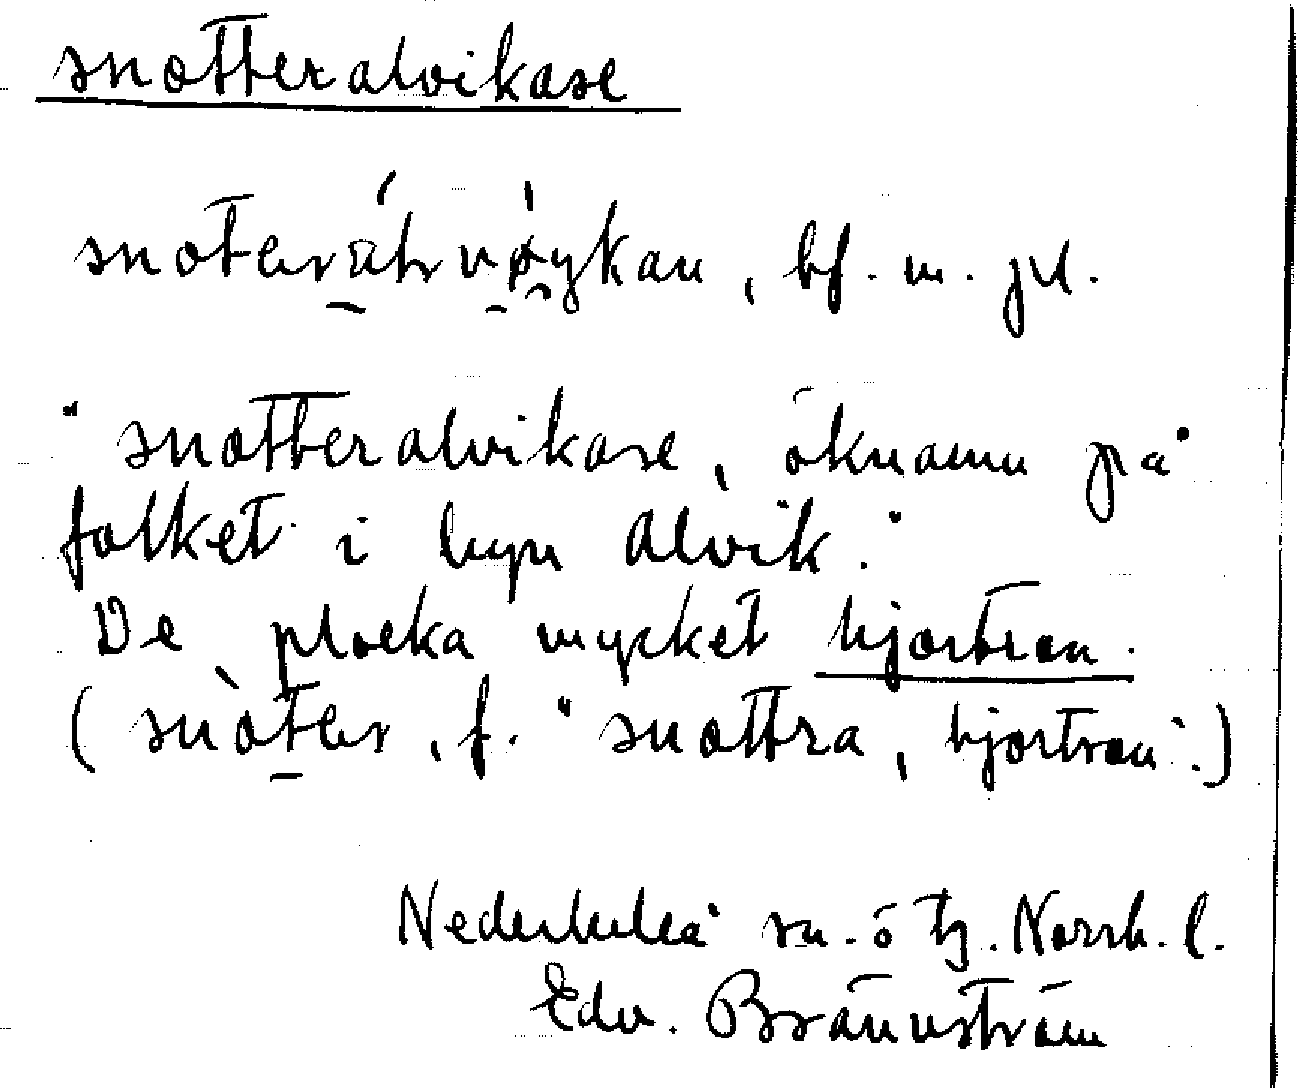 snotteralvikase
bf. m. pl.
"snotteralvikase, öknamn på
folket i byn Alvik."
De plocka mycket hjortron.
(snòter, f. "snottra, hjortron".)
Nederluleå sn. ö tg. Norrb. l.
Edv. Brännström